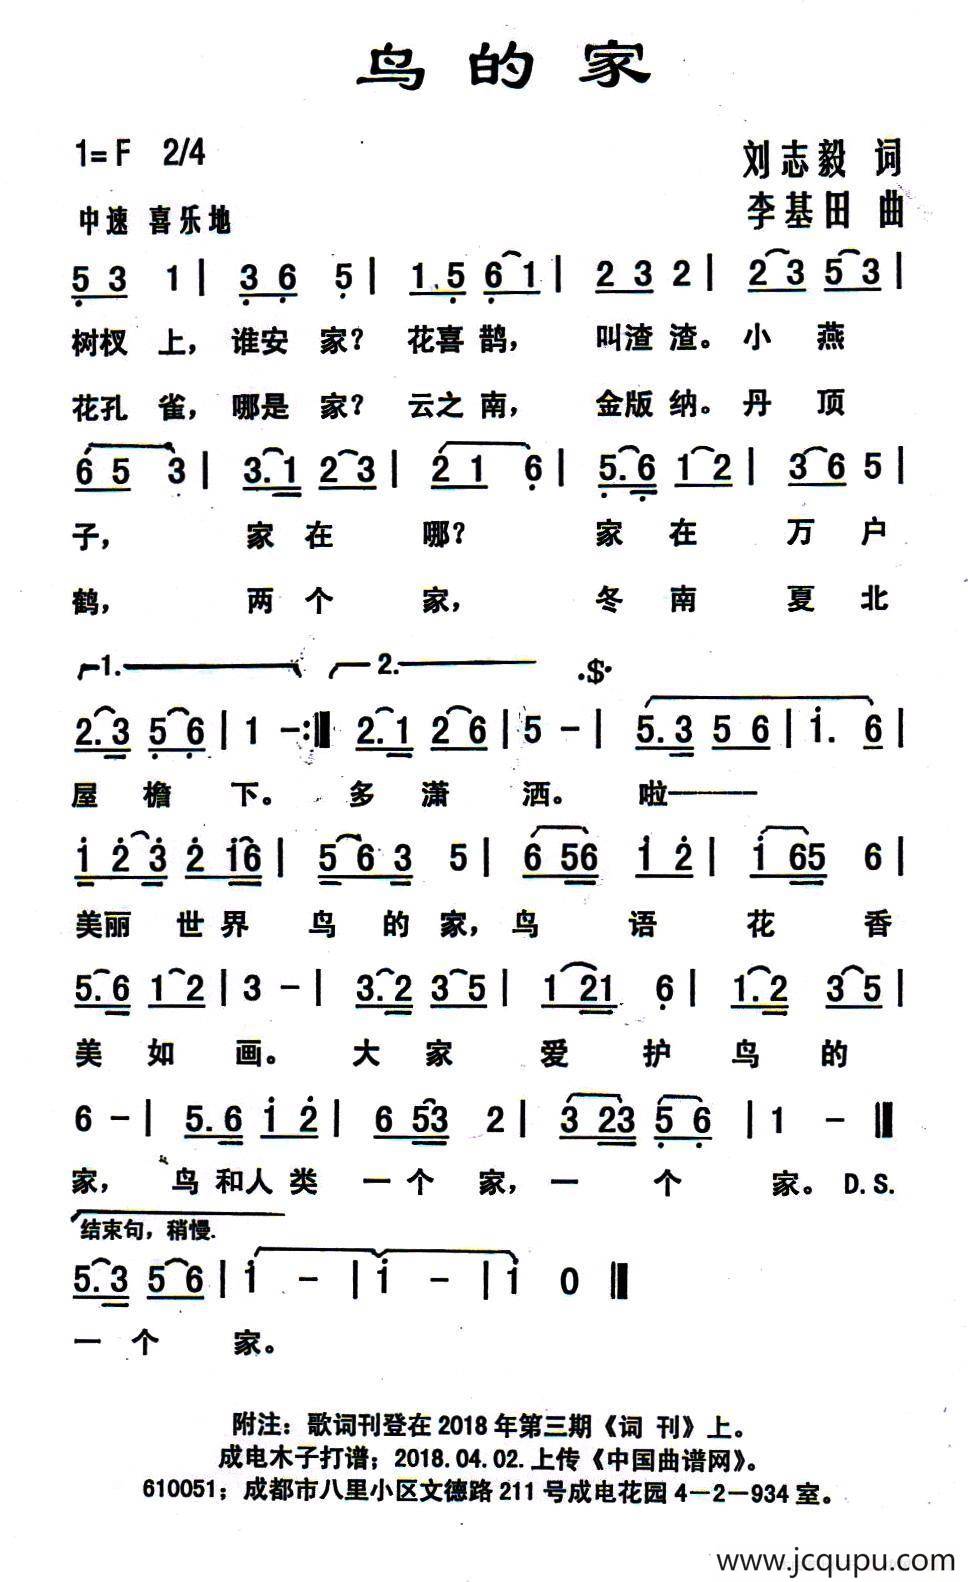 鸟的家
1=F 2/4
刘志毅 词
中速 喜乐地
李基田 曲
5 3 1 | 3 6 5 | 1. 5 6 1 | 2 3 2 | 2 3 5 3 |
树杈 上，谁安 家？花喜 鹊，叫渣 渣。小 燕
花孔 雀，哪是 家？云之 南，金版 纳。丹 顶
6 5 3 | 3. 1 2 3 | 2 1 6 | 5. 6 1 2 | 3 6 5 |
子，家 在 哪？家 在 万 户
鹤，两 个 家，冬 南 夏 北
1. 2. 𝄋
2. 3 5 6 | 1 - :‖ 2. 1 2 6 | 5 - | 5. 3 5 6 | i. 6 |
屋 檐 下。多 潇 洒。啦——
i 2 3 2 i6 | 5 6 3 5 | 6 56 i 2 | i 65 6 |
美丽 世 界 鸟 的 家，鸟 语 花 香
5. 6 1 2 | 3 - | 3. 2 3 5 | 1 21 6 | 1. 2 3 5 |
美 如 画。大 家 爱 护 鸟 的
6 - | 5. 6 i 2 | 6 53 2 | 3 23 5 6 | 1 - ‖
家，鸟 和人 类 一 个 家，一 个 家。D.S.
结束句，稍慢.
5. 3 5 6 | i - | i - | i 0 ‖
一 个 家。
附注：歌词刊登在 2018 年第三期《词 刊》上。
成电木子打谱；2018.04.02.上传《中国曲谱网》。
610051；成都市八里小区文德路 211 号成电花园 4－2－934 室。
www.jcqupu.com